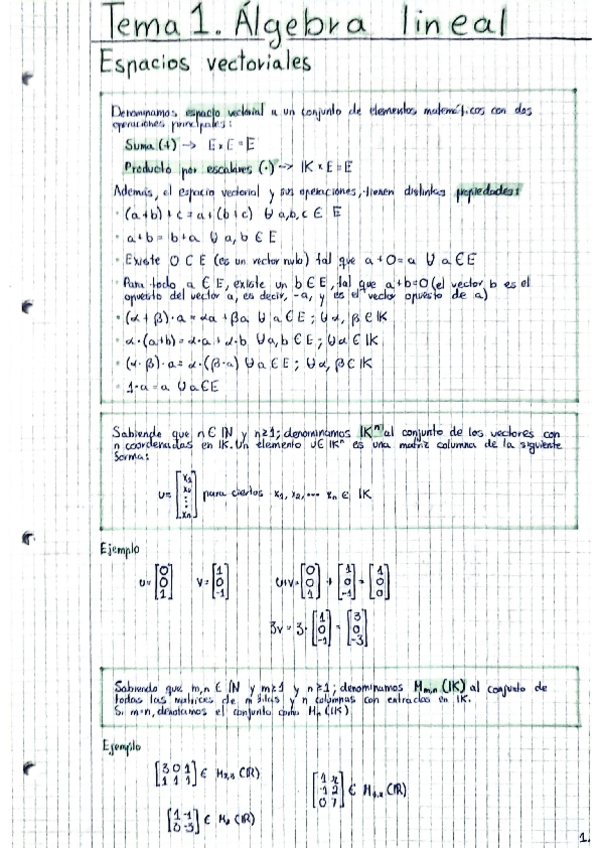 Tema 1. Álgebra lineal
Espacios vectoriales
Denominamos espacio vectorial a un conjunto de elementos matemáticos con dos
operaciones principales:
Suma (+) → E × E = E
Producto por escalares (·) → IK × E = E
Además, el espacio vectorial y sus operaciones, tienen distintas propiedades:
· (a+b)+c = a+(b+c) ∀ a,b,c ∈ E
· a+b = b+a ∀ a,b ∈ E
· Existe 0 ∈ E (es un vector nulo) tal que a+0=a ∀ a ∈ E
· Para todo a ∈ E, existe un b ∈ E, tal que a+b=0 (el vector b es el
opuesto del vector a, es decir, -a, y es el vector opuesto de a)
· (α+β)·a = αa + βa ∀ a ∈ E ; ∀ α, β ∈ IK
· α·(a+b) = α·a + α·b ∀ a,b ∈ E ; ∀ α ∈ IK
· (α·β)·a = α·(β·a) ∀ a ∈ E ; ∀ α, β ∈ IK
· 1·a = a ∀ a ∈ E
Sabiendo que n ∈ IN y n≥1; denominamos IKⁿ al conjunto de los vectores con
n coordenadas en IK. Un elemento u ∈ IKⁿ es una matriz columna de la siguiente
forma:
u = [x₁ x₂ ⋮ xₙ] para ciertos x₁, x₂, ... xₙ ∈ IK
Ejemplo
u = [0 0 1] v = [1 0 -1] u+v = [0 0 1] + [1 0 -1] = [1 0 0]
3v = 3· [1 0 -1] = [3 0 -3]
Sabiendo que m,n ∈ IN y m≥1 y n≥1; denominamos Mm,n (IK) al conjunto de
todas las matrices de m filas y n columnas con entradas en IK.
Si m=n, denotamos el conjunto como Mn (IK)
Ejemplo
[3 0 1 / 1 1 1] ∈ M₂,₃ (IR) [1 π / -1 2 / 0 7] ∈ M₃,₂ (IR)
[1 -1 / 0 -3] ∈ M₂ (IR)
1.